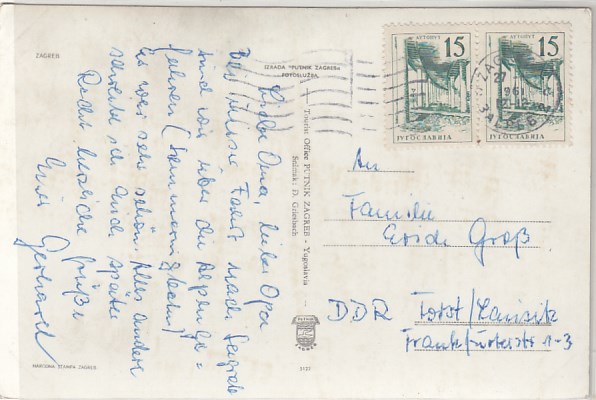 ZAGREB
IZRADA "PUTNIK ZAGREB"
FOTOSLUŽBA
Liebe Oma, lieber Opa
Bei Fahrt nach Zagreb
sind wir über die Alpen ge=
fahren
es war sehr schön Alles andere
ich Euch später
Recht herzliche Grüße
Euer Gerhard
NARODNA ŠTAMPA ZAGREB
Tourist Office PUTNIK ZAGREB - Yugoslavia
Snimak: D. Griesbach
PUTNIK
ZAGREB
3123
15
JUGOSLAVIJA
15
JUGOSLAVIJA
ZAGREB
27
961
An
Familie
Groß
DDR Forst/Lausitz
Frankfurterstr 1-3